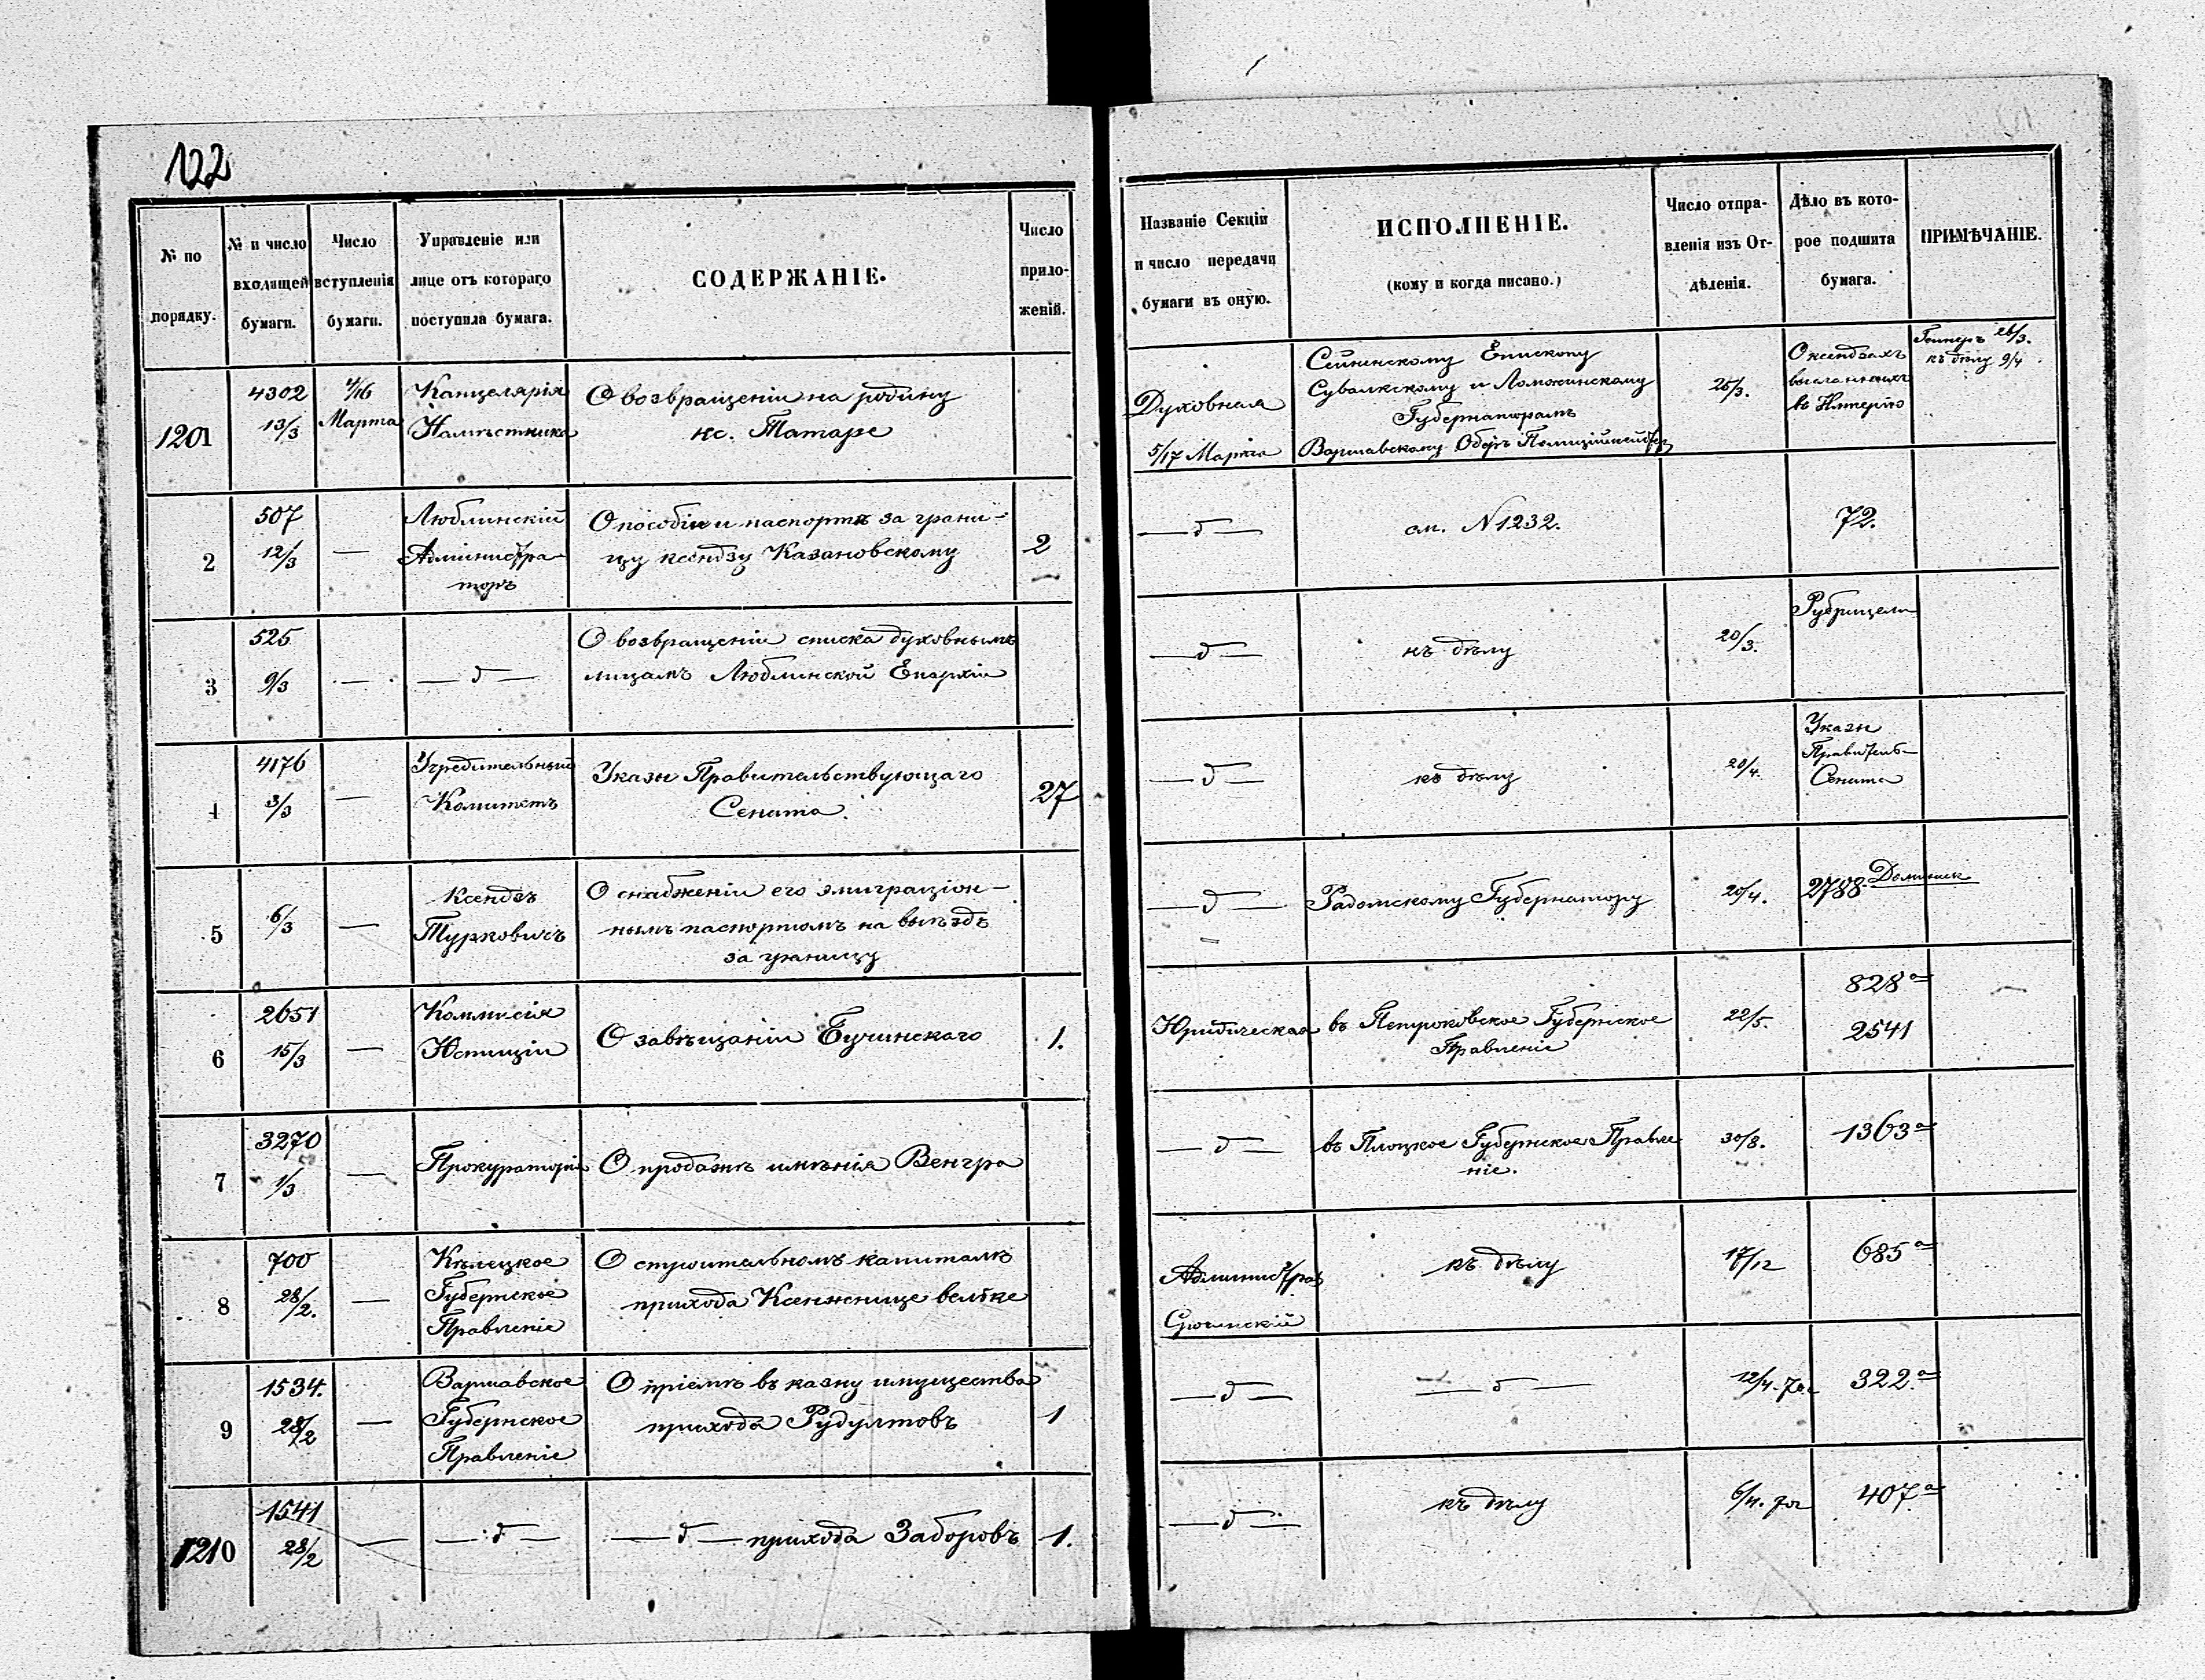 122
№ по порядку.
№ и число входящей бумаги.
Число вступленія бумаги.
Управленіе или лице отъ котораго поступила бумага.
СОДЕРЖАНІЕ.
Число приложеній.
Названіе Секціи и число передачи бумаги въ оную.
ИСПОЛНЕНІЕ.
(кому и когда писано.)
Число отправленія изъ Отдѣленія.
Дѣло въ которое подшита бумага.
ПРИМѢЧАНІЕ.
1201
4302
13/3
4/16
Марта
Канцелярія
Намѣстника
О возвращеніи на родину
кс. Татаре
Духовная
5/17 Марта
Сейненскому Епископу
Сувалкскому и Ломжинскому
Губернаторамъ
Варшавскому Оберъ Полиціймейстеру
25/3.
О ксендзахъ
высланныхъ
въ Имперію
26/3.
къ дѣлу 9/4
2
507
12/3
—
Люблинскій
Администра-
торъ
О пособіи и паспортѣ за грани-
цу ксендзу Казановскому
2
— д —
см. N 1232.
72.
3
525
9/3
—
— д —
О возвращеніи списка духовнымъ
лицамъ Люблинской Епархіи
— д —
къ дѣлу
20/3.
Рубрицели
4
4176
3/3
—
Учредительный
Комитетъ
Указы Правительствующаго
Сената.
27
— д —
къ дѣлу
20/4.
Указы
Правитель-
Сената
5
6/3
—
Ксендзъ
Турковичъ
О снабженіи его эмиграціон-
нымъ паспортомъ на выѣздъ
за границу
— д —
Радомскому Губернатору
20/4.
2788
6
2651
15/3
—
Коммисія
Юстиціи
О завѣщаніи Бучинскаго
1.
Юридическая
въ Петроковское Губернское
Правленіе
22/5.
828 а
2541
7
3270
1/3
—
Прокураторія
О продажѣ имѣнія Венгра
— д —
въ Плоцкое Губернское Правле
ніе.
30/8.
1363 а
8
700
28/2.
—
Кѣлецкое
Губернское
Правленіе
О строительномъ капиталѣ
прихода Ксенжнице велке
къ дѣлу
17/12
685 а
9
1534.
28/2
—
Варшавское
Губернское
Правленіе
О пріемѣ въ казну имущества
прихода Рудултовъ
1
— д —
— д —
12/4. 70 г
322 а
1210
1541
28/2
—
— д —
— д — прихода Заборовъ
1.
— д —
къ дѣлу
6/4. 70 г
407 а